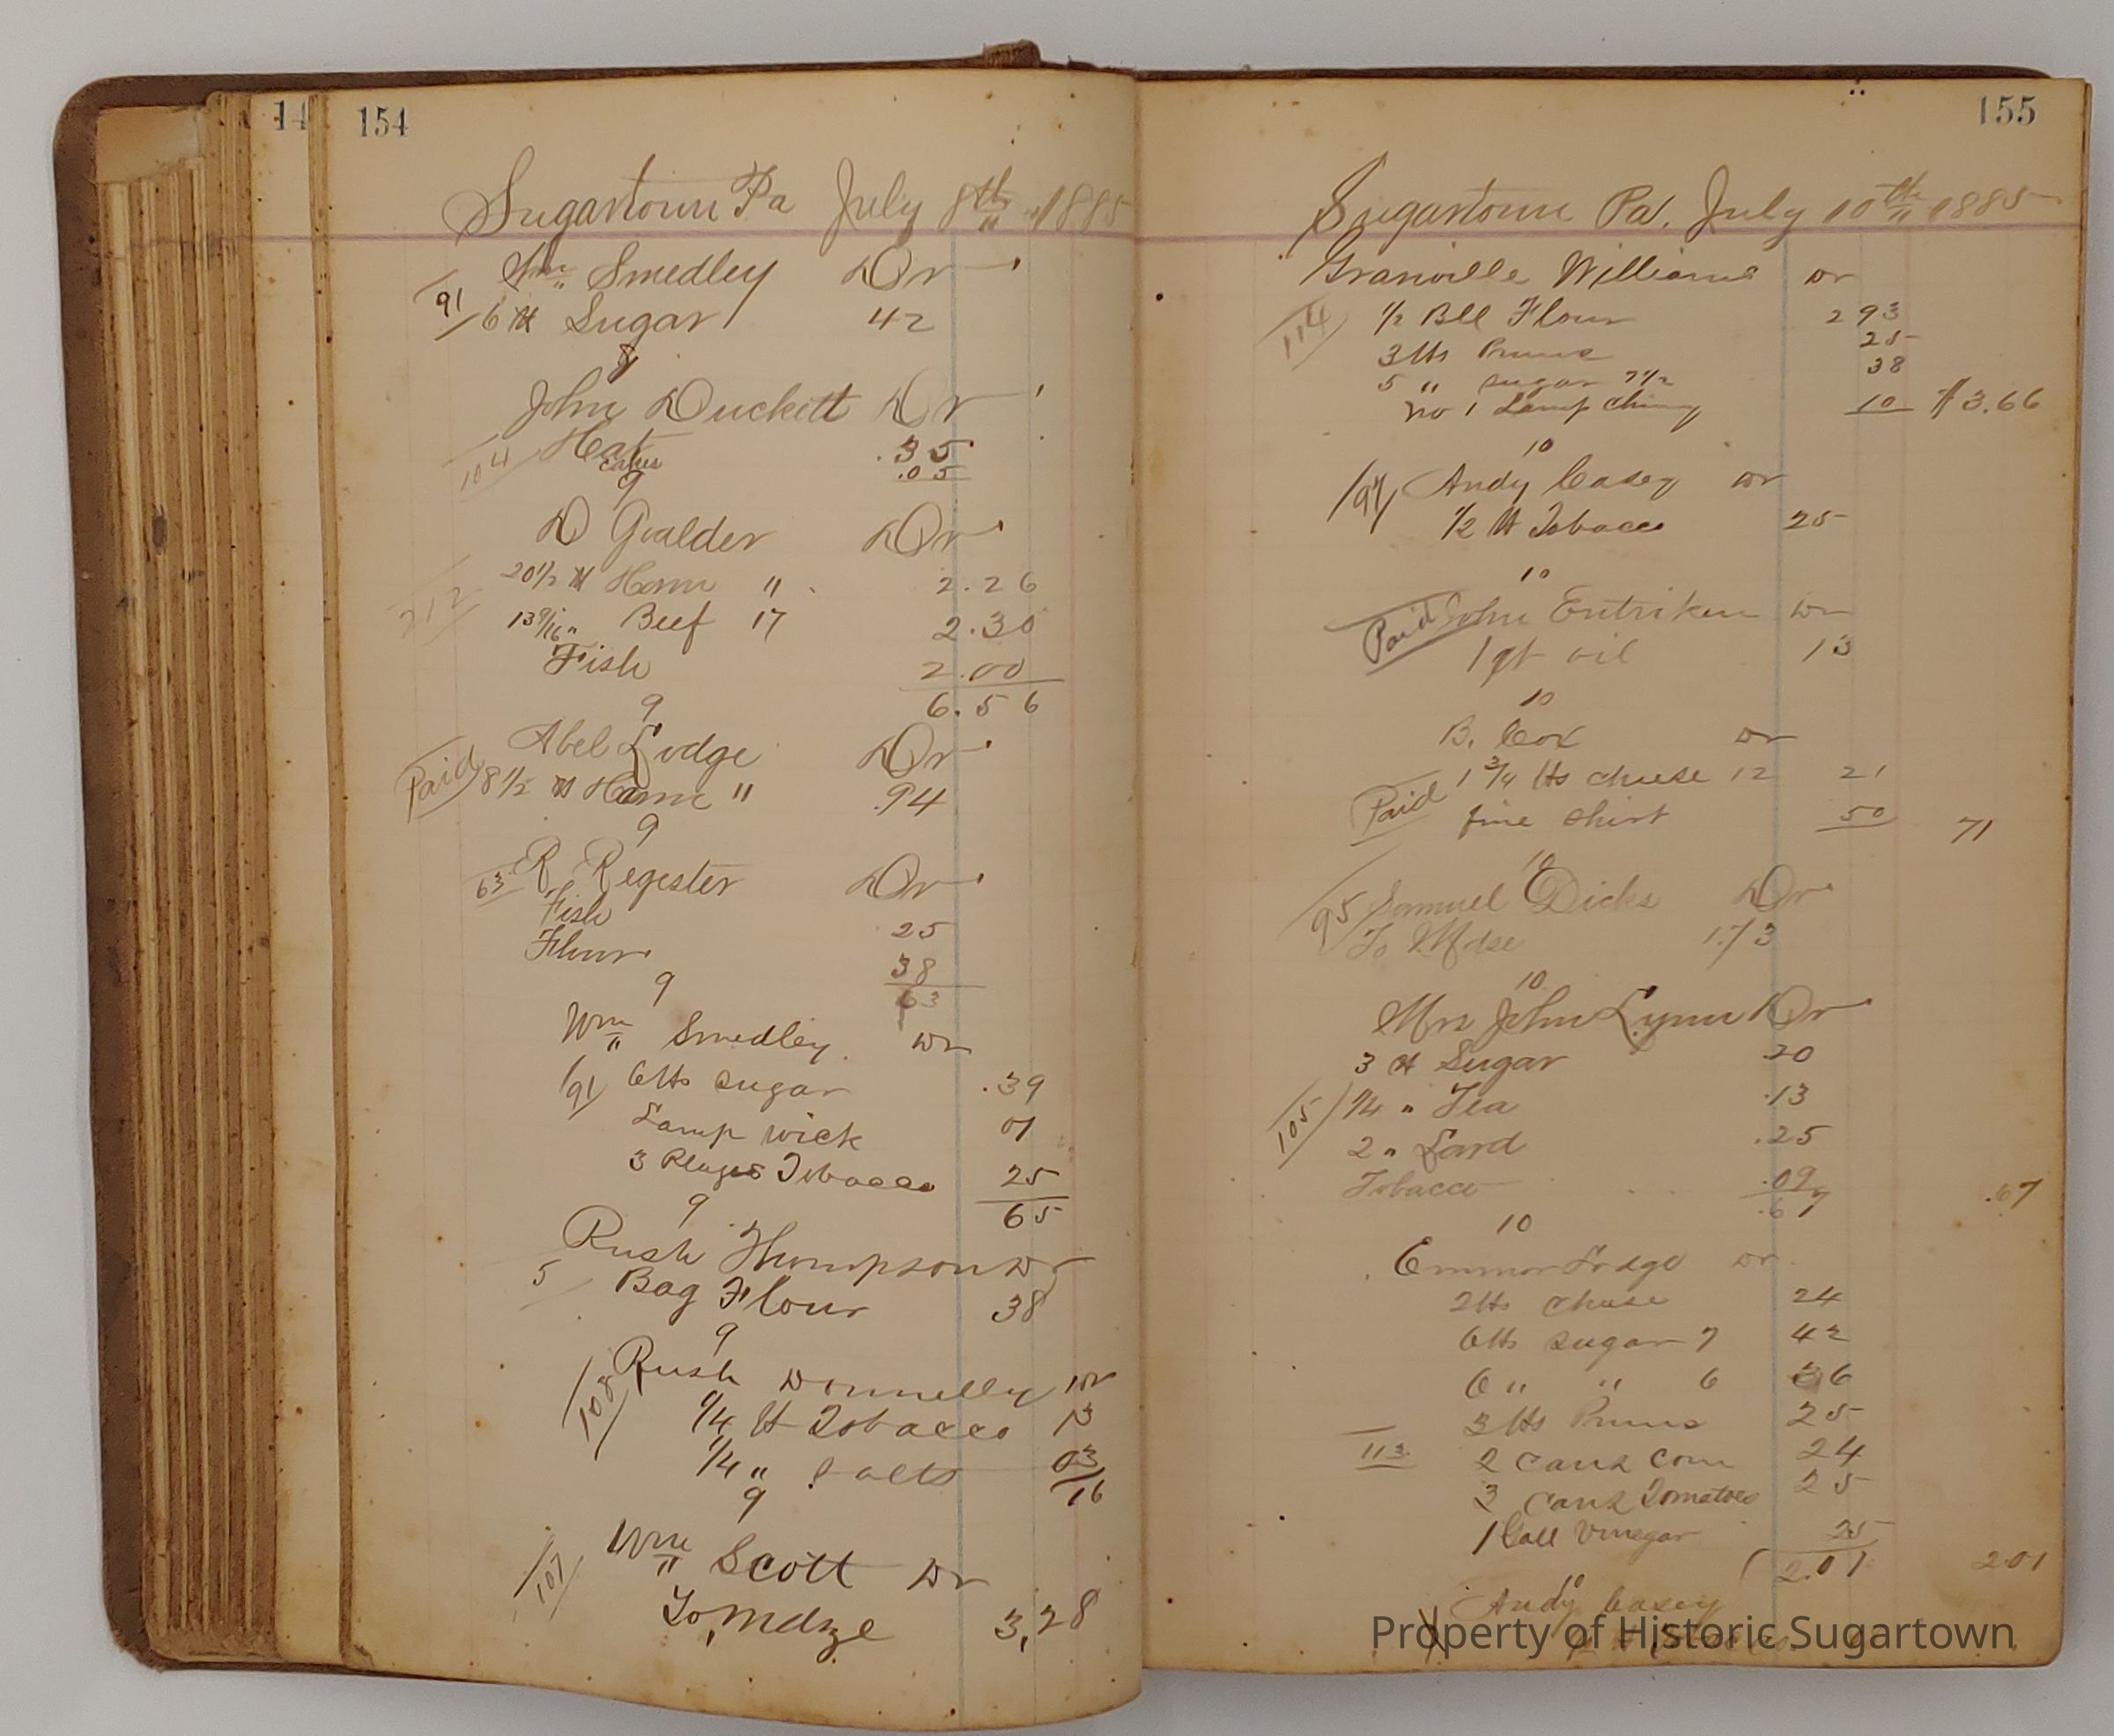 14
154
Sugartown Pa July 8th 1885
Wm Smedley Dr
91 6 lb Sugar 42
8
John Duckett Dr
104 Hat .35
cakes .05
9
D Gralder Dr
212 20 1/2 lb Ham " 2.26
13 9/16 " Beef 17 2.30
Fish 2.00
9 6.56
Abel Lodge Dr
Paid 8 1/2 lb Ham " .94
9
63 R Register Dr
Fish 25
Flour 38
9 63
Wm Smedley Dr
91 6 lbs sugar .39
Lamp wick 01
3 Plugs Tobacco 25
9 65
Rush Thompson Dr
5 Bag Flour 38
9
Rush Donnelly Dr
108 1/4 lb Tobacco 13
1/4 " salts 03
9 16
Wm Scott Dr
107 To Mdze 3,28
155
Sugartown Pa. July 10th 1885
Granville Williams Dr
114 1/2 Bll Flour 293
3 lbs Pruns 25
5 " sugar 7 1/2 38
no 1 Lamp Chimy 10 $3.66
10
94 Andy Casey Dr
1/2 lb Tobacco 25
10
Paid John Entriken Dr
1 qt oil 13
10
B. Cox Dr
1 3/4 lbs cheese 12 21
Paid fine shirt 50 71
10
95 Samuel Dicks Dr
To Mdse 1.73
10
Mrs John Lynn Dr
3 lb Sugar 20
105 1/4 " Tea .13
2 " Lard .25
Tobacco .09
.67 .67
10
Emmor Lodge Dr
2 lbs cheese 24
6 lbs sugar 7 42
6 " " 6 36
3 lbs Pruns 25
113 2 cans corn 24
3 cans Tomatoes 25
1 Gall Vinegar 25
2.01 201
10
Andy Casey
Property of Historic Sugartown